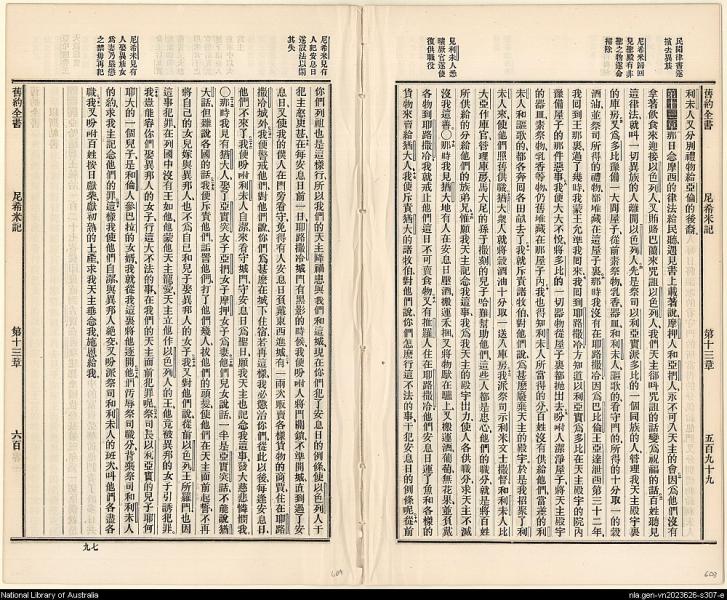 民聞律書遂
擯去異族
尼希米歸回
見聖殿有非
聖之物遂命
掃除
見利未人悉
曠厥官遂使
復供職役
舊約全書
尼希米記
第十三章
五百九十九
利未人又分別禮物給亞倫的後裔
第十三章那日念摩西的律法給民聽遇見書上載著說摩押人和亞捫人永不可入天主的會因為他們沒有
拿著飲食來迎接以色列人又賄賂巴蘭來咒詛以色列人我們天主卻叫咒詛的話變為祝福的話百姓聽見
這律法就叫一切異族的人離開以色列人先是祭司以利亞實派多比的一個同族的人管理我天主殿宇裏
的庫房又為多比預備一大間屋子從前素祭物乳香器皿和利未人謳歌的看守門的所得的十分取一的穀
酒油並祭司所得的禮物都堆藏在這屋子裏那時我沒有在耶路撒冷因為巴比倫王亞達泄西第三十二年
我回到王那裏過了幾時我蒙王允準我回來我回到耶路撒冷方知道以利亞實為多比在天主殿宇的院內
豫備屋子的那件惡事我便大大不悅將多比的一切器物從屋子裏都抛出去吩咐人潔淨屋子將天主殿宇
的器皿素祭物乳香等物仍舊堆藏在那屋子內我也得知利未人所當得的分百姓沒有供給他們當差的利
未人和謳歌的都各奔回各田畝去了我就斥責諸牧伯對他們說為甚麼廢棄天主的殿宇於是我招聚了利
未人來使他們照舊供職猶大衆人就將穀酒油十分取一送入庫房我派祭司示利米文士撒督和利未人毘
大亞作庫官管理庫房馬大尼的孫子撒刻的兒子哈難幫助他們這些人都是忠心他們的職分就是將百姓
所供給的分給他們的族弟兄惟願我天主記念我這事我為我天主的殿宇出力使人各供職分求天主不滅
沒我這善〇那時我見猶大地有人在安息日壓酒搬運禾稇又將物馱在驢上又搬運酒葡萄無花果並負戴
各物到耶路撒冷我就戒止他們這日不可賣食物又有推羅人住在耶路撒冷他們安息日運了魚和各樣的
貨物來賣給猶大人我便斥責猶大的諸牧伯對他們說你們怎麼行這不法的事干犯安息日的例條呢從前
尼希米見有
人犯安息日
遂設法以禦
其失
尼希米見有
人娶異族女
爲妻乃嚴懲
之禁毋再犯
你們列祖也是這樣行所以我們的天主降禍患與我們和這城現在你們犯了安息日的例條使以色列人干
主怒更甚在每安息日前一日耶路撒冷城門有黑影的時候我便吩咐人將門關鎖不準開城直到過了安
息日又使我的僕人在門旁看守免得有人安息日負戴東西進城有一兩次販賣各樣貨物的商賈住在耶路
撒冷城外我便警戒他們對他們說你們為甚麼在城下住宿若再這樣我必懲治你們從此以後每逢安息日
他們不來了我便吩咐利未人自潔來看守城門守安息日為聖日願我天主也記念我這事發大慈悲憐憫我
〇那時我見有猶大人娶了亞實突女子亞捫女子摩押女子為妻他們兒女說話一半是亞實突話不能說猶
大話但雖說各國的話我便斥責他們詬詈他們打了他們幾人拔他們的頭髮使他們在天主面前起誓不再
將自己的女兒嫁與異邦人也不為自己和兒子娶異邦人的女子我又對他們說從前以色列王所羅門也因
這事犯罪在列國中沒有王如他他蒙他天主寵愛天主立他作以色列人的王他竟被異邦的女子引誘犯罪
我豈能容你們娶異邦人的女子行這大不法的事在我們的天主面前犯罪呢祭司長以利亞實的兒子耶何
耶大的一個兒子是和倫人參巴拉的女婿我就從我這裏將他逐開他們汚辱祭司職分背棄祭司和利未人
的約求我主記念他們的罪這樣我使他們自潔與異邦人絕交又吩派祭司和利未人的班次叫他們各盡各
職我又吩咐百姓按日獻柴獻初熟的土產求我天主垂念我施恩給我
舊約全書
尼希米記
第十三章
六百
七九
604
603
National Library of Australia
nla.gen-vn2023626-s307-e